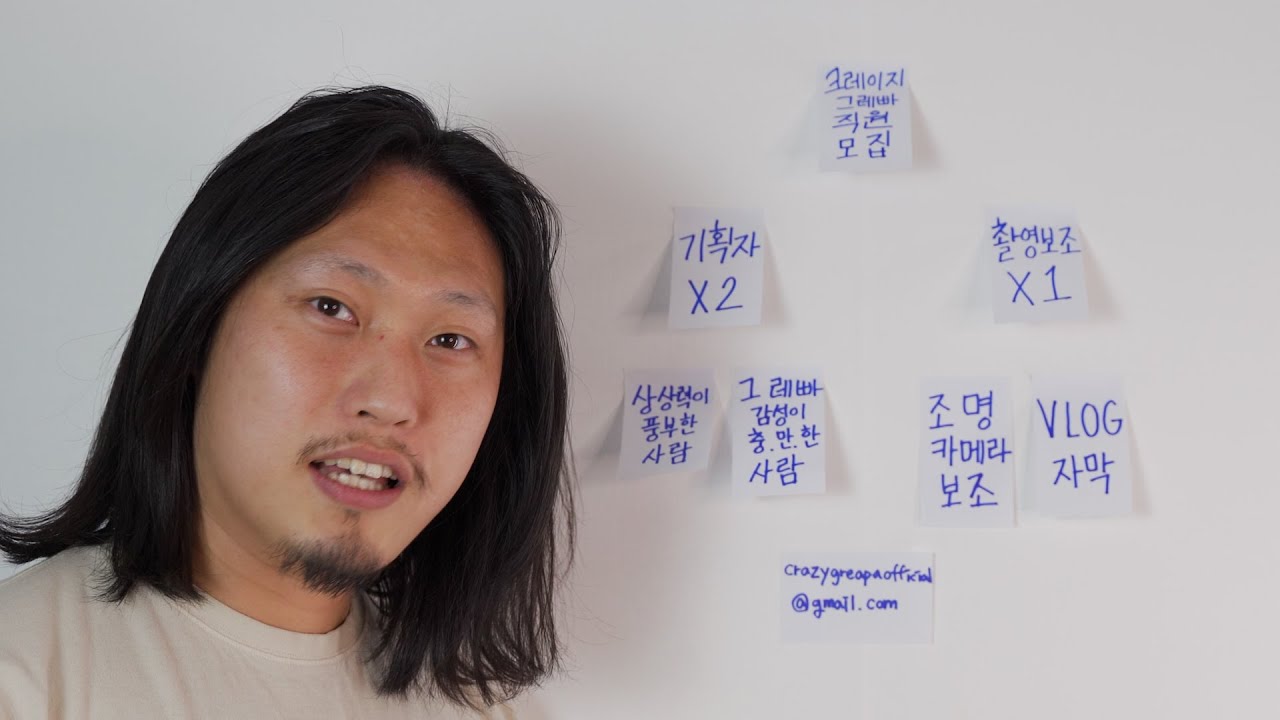 크레이지
그레빠
직원
모집
기획자
X2
촬영보조
X1
상상력이
풍부한
사람
그레빠
감성이
충.만.한
사람
조명
카메라
보조
VLOG
자막
crazygreapaofficial
@gmail.com